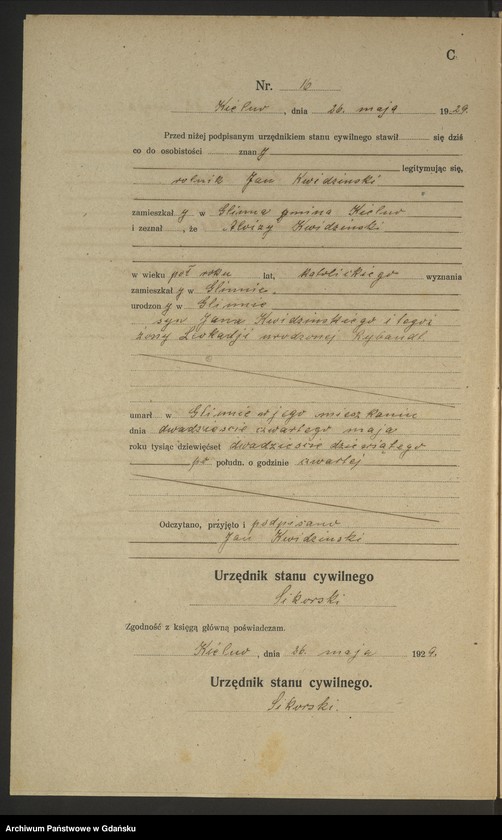 C
Nr. 16
Kielno, dnia 26. maja 1929.
Przed niżej podpisanym urzędnikiem stanu cywilnego stawił się dziś
co do osobistości znany
legitymując się,
rolnik Jan Kwidzinski
zamieszkały w Glinna gmina Kielno
i zeznał, że Alojzy Kwidzinski
w wieku pół roku lat, katolickiego wyznania
zamieszkały w Glinnie.
urodzony w Glinnie
syn Jana Kwidzinskiego i tegoż
żony Leokadji urodzonej
umarł w Glinnie w jego mieszkaniu
dnia dwadziescie czwartego maja
roku tysiąc dziewięćset dwadziescie dziewiątego
po połudn. o godzinie czwartej
Odczytano, przyjęto i podpisano
Jan Kwidzinski
Urzędnik stanu cywilnego
Sikorski
Zgodność z księgą główną poświadczam.
Kielno, dnia 26. maja 1929.
Urzędnik stanu cywilnego.
Sikorski.
Archiwum Państwowe w Gdańsku